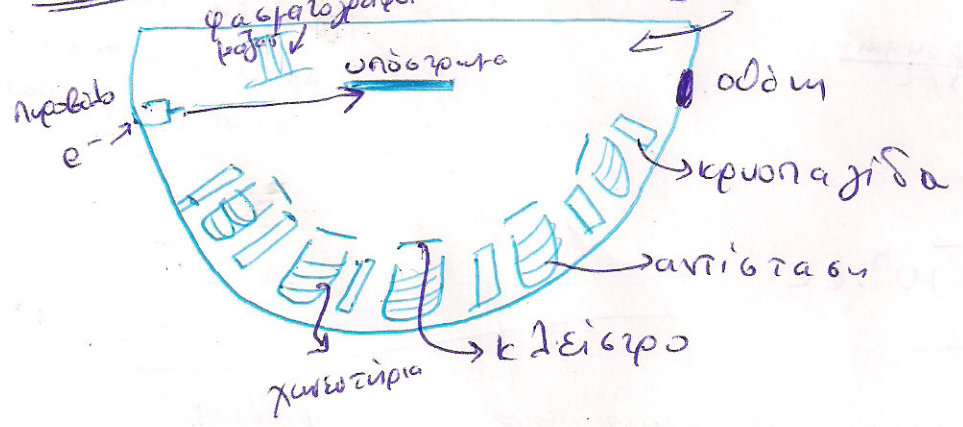 φασματογράφος
μαζών
υπόστρωμα
οθόνη
πυροβόλο
e⁻
κρυοπαγίδα
αντίσταση
κλείστρο
χωνευτήρια